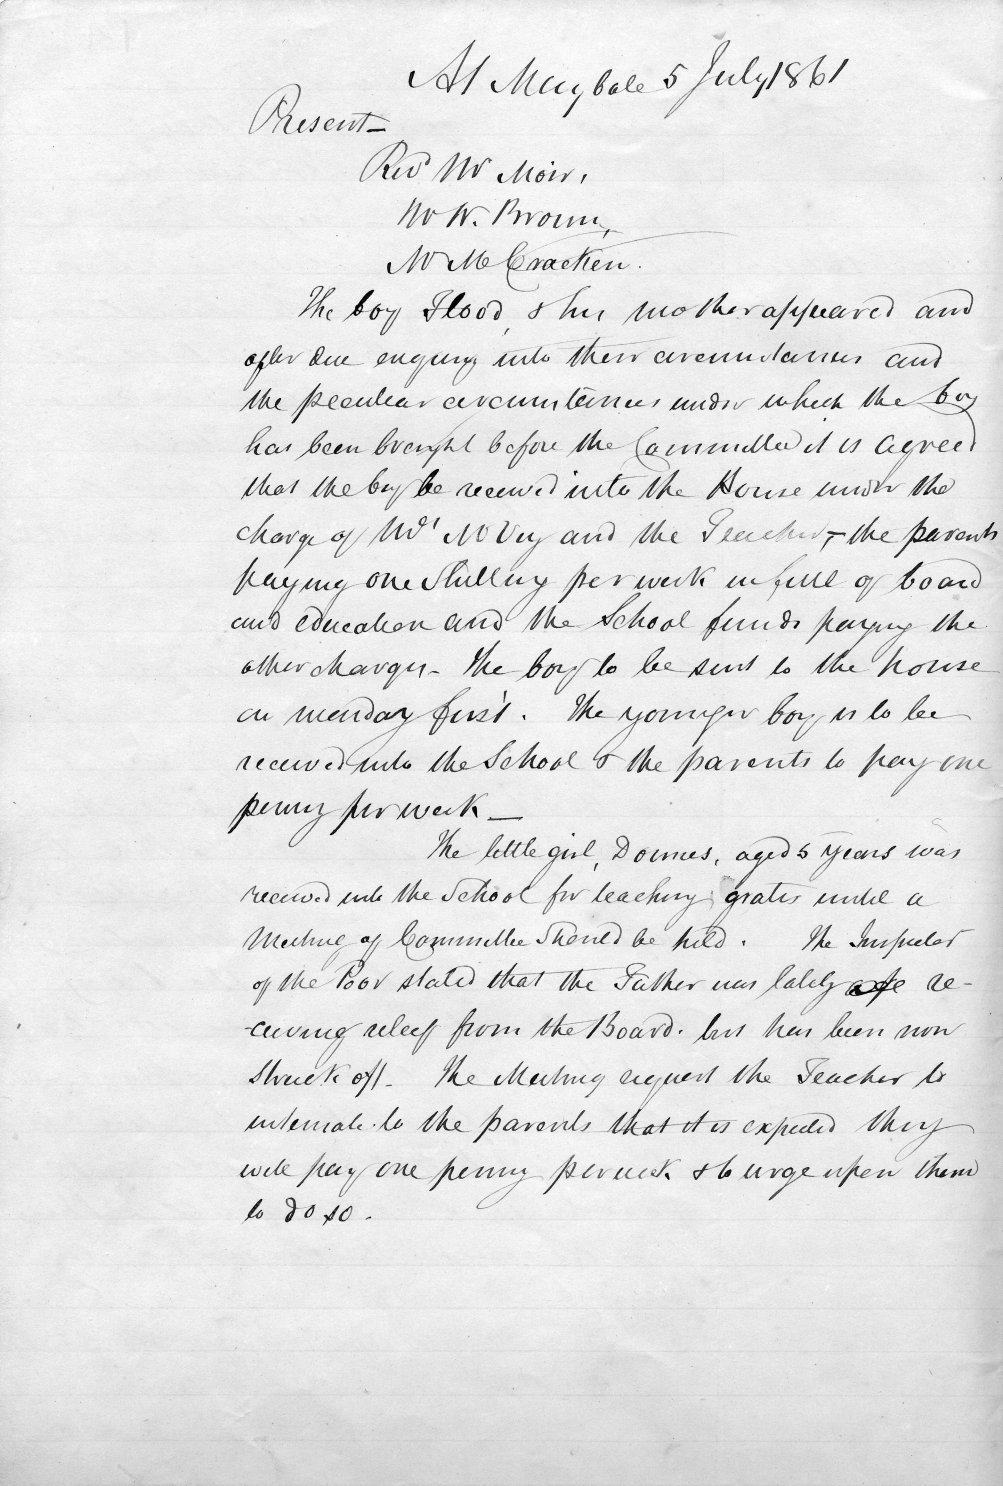 At Maybole 5 July 1861
Present—
Revd Mr Moir,
Mr W. Brown,
Mr McCracken.
The boy Flood, & his mother appeared and
after due enquiry into their circumstances and
the peculiar circumstances under which the boy
has been brought before the Committee it is agreed
that the boy be received into the House under the
charge of Mrs McVey and the Teacher,— the parents
paying one Shilling per week in full of board
and education and the School funds paying the
other charges— The boy to be sent to the house
on monday first. The younger boy is to be
received into the School & the parents to pay one
penny per week—
The little girl, Downes, aged 5 years was
received into the School for teaching gratis until a
Meeting of Committee should be held. The Inspector
of the Poor stated that the Father was lately re-
-ceiving relief from the Board. but has been now
struck off— The Meeting request the Teacher to
intimate to the parents that it is expected they
will pay one penny per week & to urge upon them
to do so.